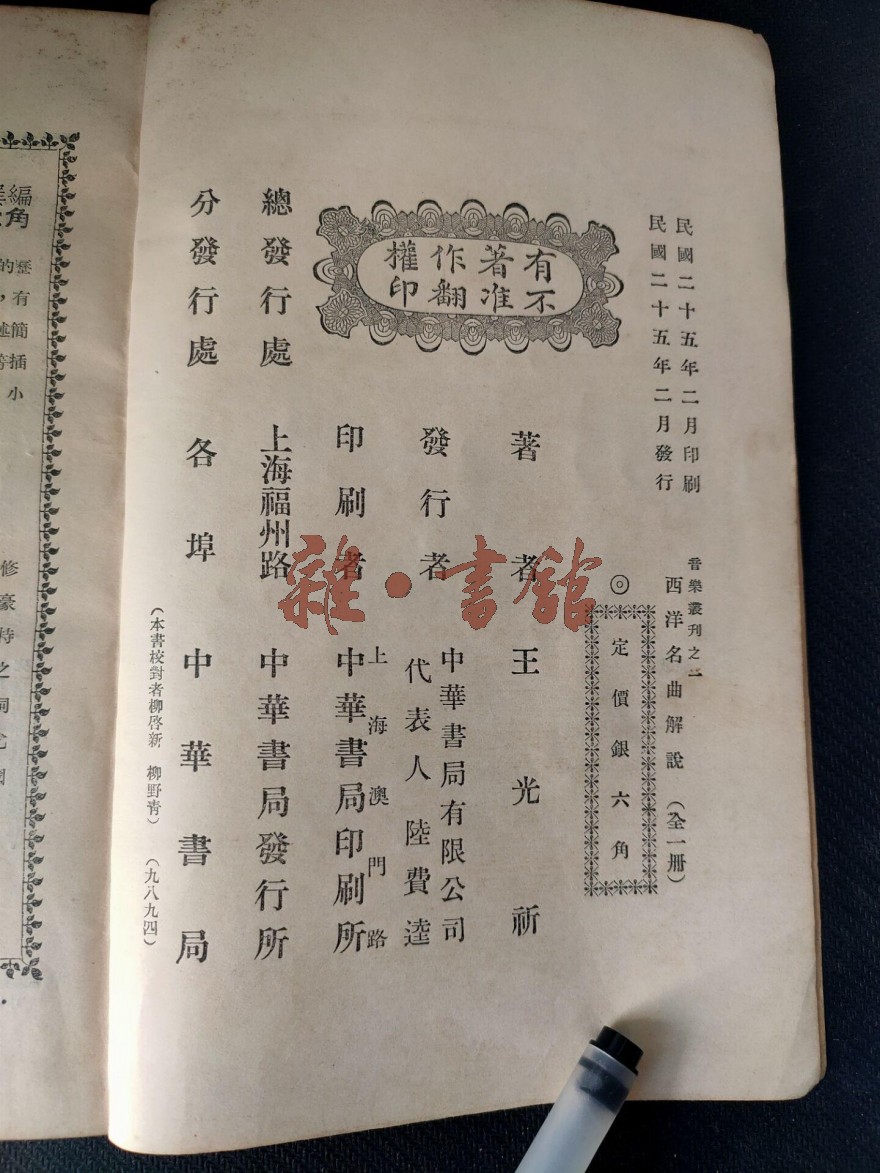 民國二十五年二月印刷
民國二十五年二月發行
音樂叢刊之二
西洋名曲解說（全一冊）
◎定價銀六角
有著作權
不准翻印
著者 王光祈
發行者 中華書局有限公司
代表人 陸費逵
印刷者 上海澳門路
中華書局印刷所
總發行處 上海福州路 中華書局發行所
分發行處 各埠 中華書局
（本書校對者柳啓新 柳野青）（九八九四）
雜·書館
編
角
的
，有
簡
插
小
修
豪
之